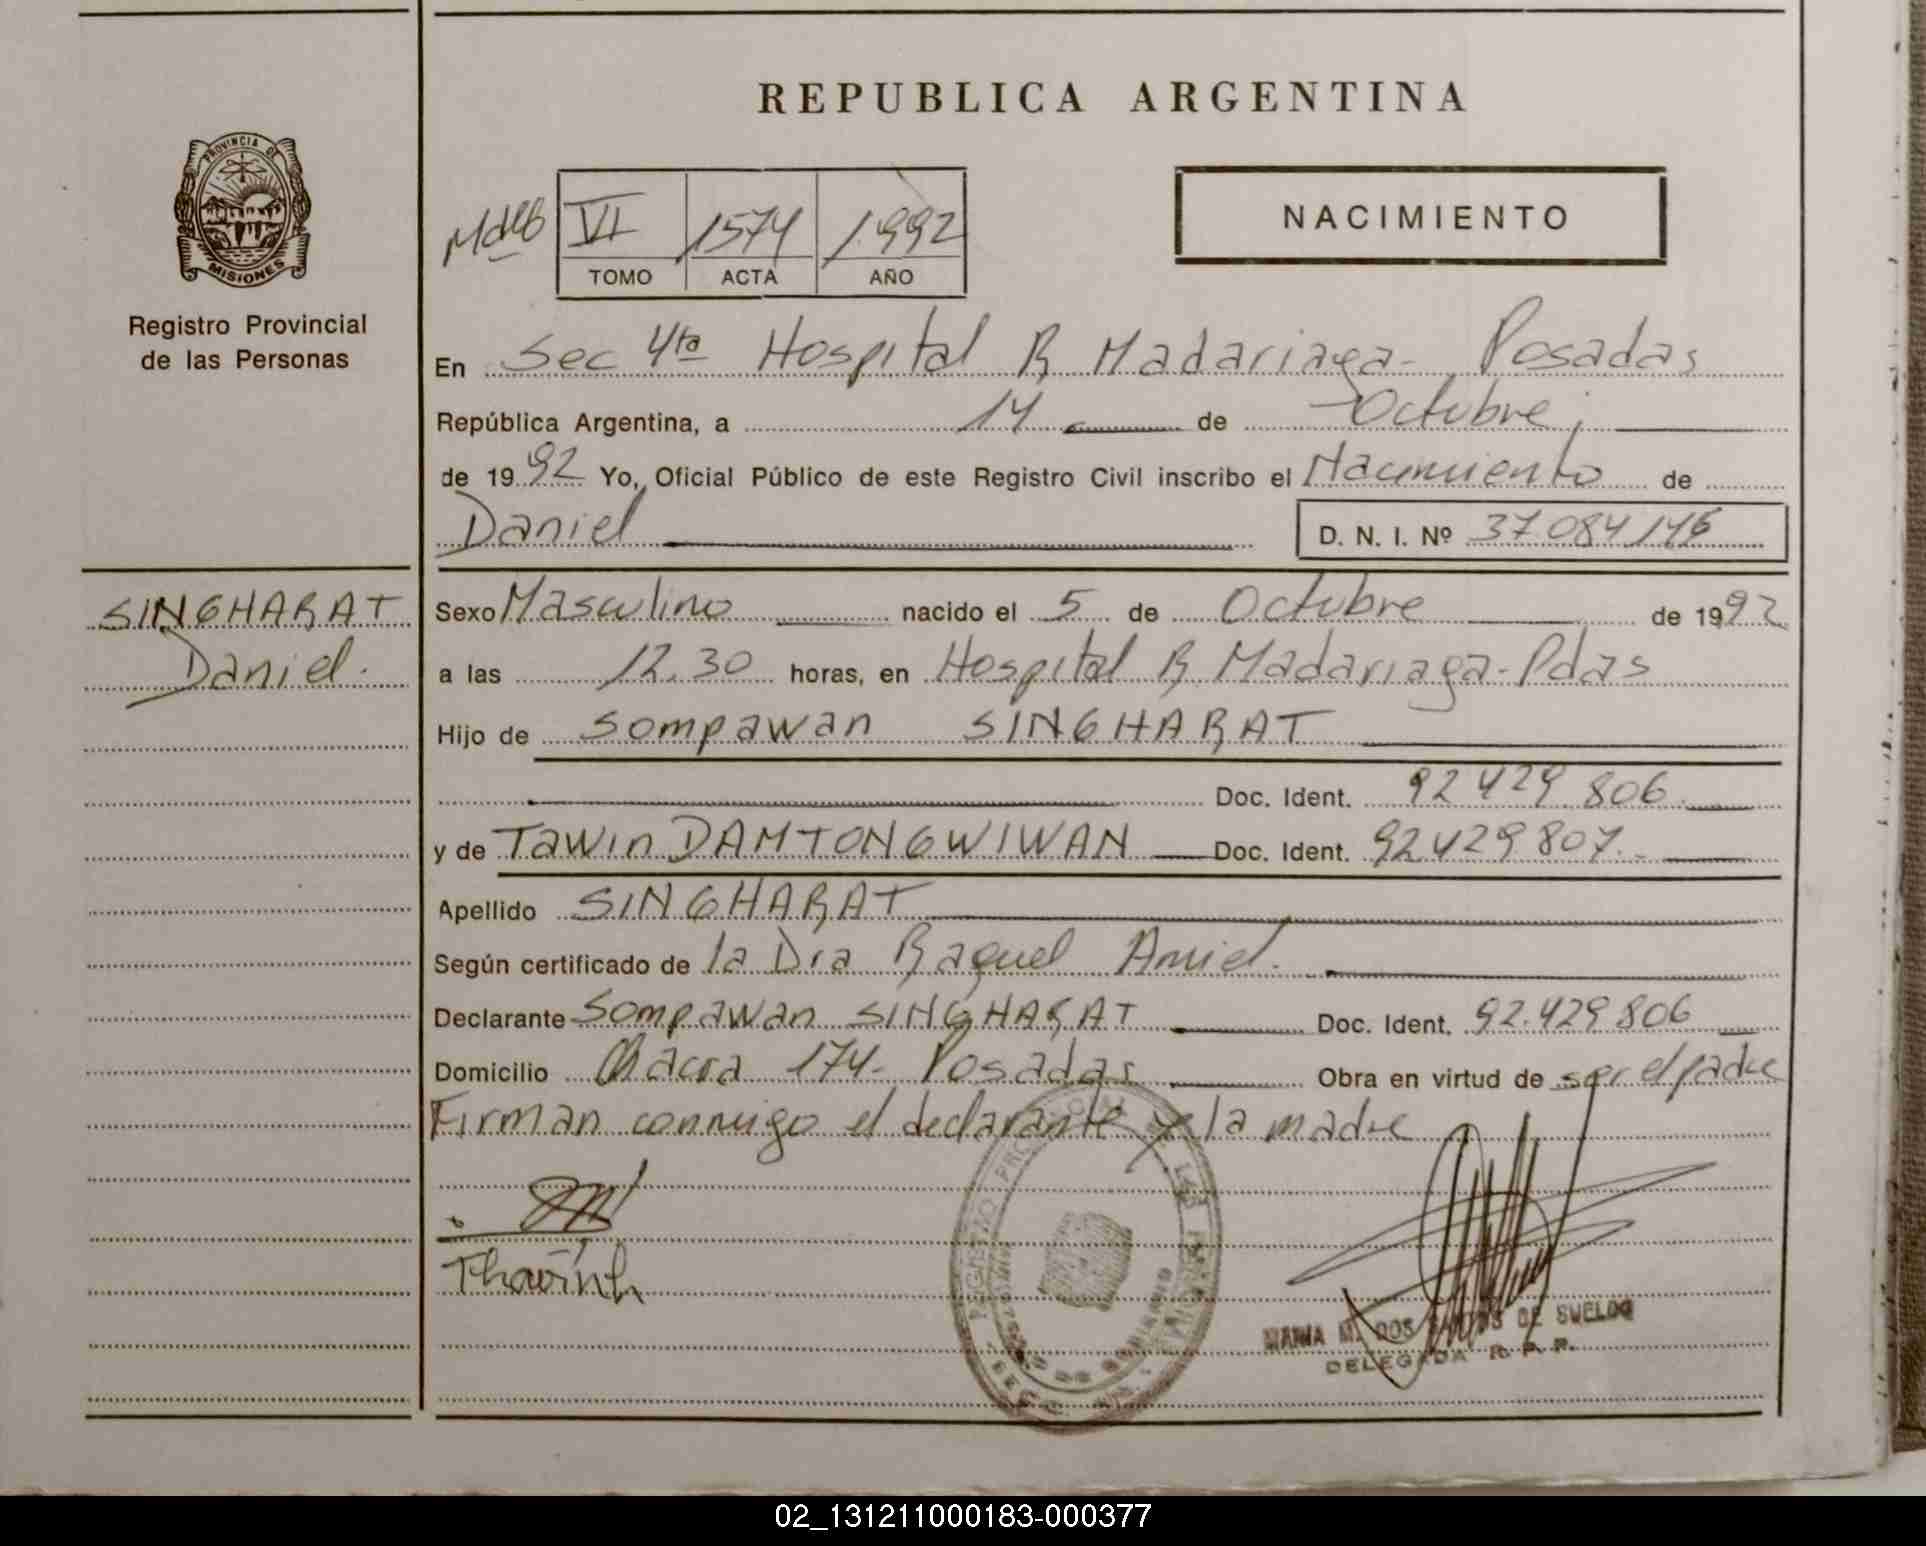 REPUBLICA ARGENTINA
PROVINCIA DE
MISIONES
Registro Provincial
de las Personas
VI 1574 1992
TOMO ACTA AÑO
NACIMIENTO
En Sec 4ta Hospital R Madariaga - Posadas
República Argentina, a 14 de Octubre
de 1992 Yo, Oficial Público de este Registro Civil inscribo el Nacimiento de
Daniel D. N. I. Nº 37 084 146
SINGHARAT
Daniel.
Sexo Masculino nacido el 5 de Octubre de 1992
a las 12.30 horas, en Hospital R Madariaga - Pdas
Hijo de Sompawan SINGHARAT
Doc. Ident. 92 429 806
y de Tawin DAMTONGWIWAN Doc. Ident. 92 429 807.
Apellido SINGHARAT
Según certificado de la Dra Raquel Amiel.
Declarante Sompawan SINGHARAT Doc. Ident. 92.429 806
Domicilio Chacra 174 - Posadas Obra en virtud de ser el padre
Firman conmigo el declarante y la madre
MARIA M. DOS SANTOS DE SUELDO
DELEGADA R. P. P.
02_131211000183-000377